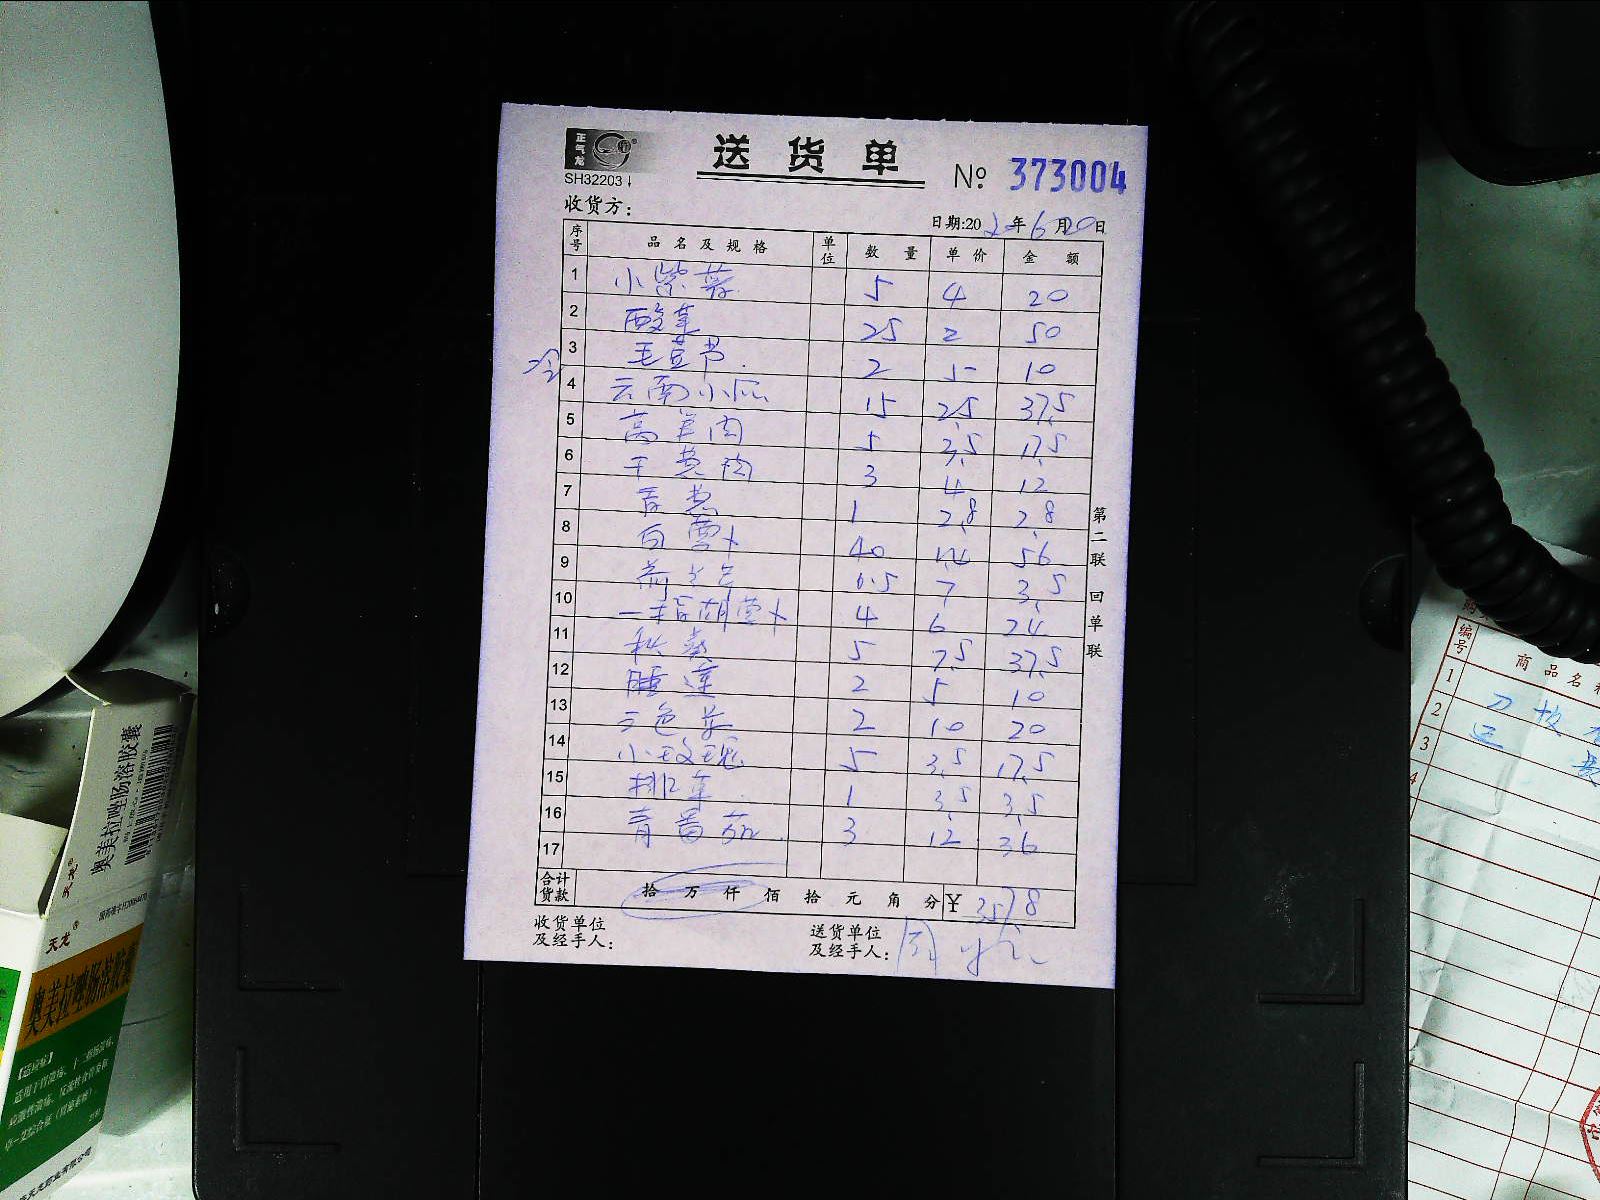 正气龙
SH32203↓
送货单
№ 373004
收货方:
日期:202 年6月20日
序号 品名及规格 单位 数量 单价 金额
1 小紫薯 5 4 20
2 酸菜 25 2 50
3 毛豆节 2 5 10
冷
4 云南小瓜 15 2.5 37.5
5 高羊肉 5 3.5 17.5
6 干黄肉 3 4 12
7 青 1 2.8 2.8
8 白萝卜 40 1.4 56
9 荷兰豆 0.5 7 3.5
10 一指胡萝卜 4 6 24
11 秋葵 5 7.5 37.5
12 睡莲 2 5 10
13 三色 2 10 20
14 小玫瑰 5 3.5 17.5
15 排 1 3.5 3.5
16 青番茄 3 12 36
17
合计货款 拾 万 仟 佰 拾 元 角 分 ¥ 357.8
收货单位及经手人:
送货单位及经手人:
第二联 回单联
天龙®
奥美拉唑肠溶胶囊
国药准字H20064470
天龙®
奥美拉唑肠溶胶囊
【适应症】
编号 商品名称
1
2
3
4